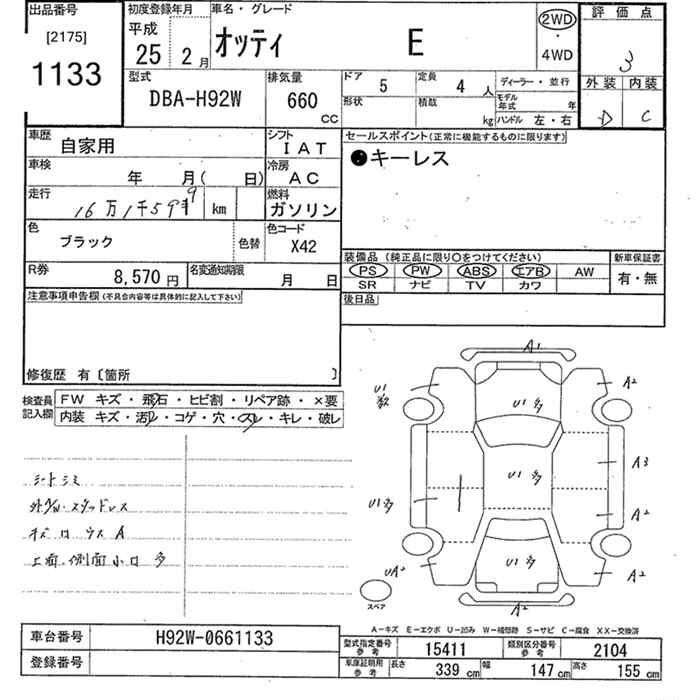 出品番号
[2175]
1133
初度登録年月
平成
25 2月
車名・グレード
オッティ E
2WD
・
4WD
評価点
3
外装 内装
D C
型式
DBA-H92W
排気量
660
CC
ドア 5
定員 4 人
形状
積載 kg
ディーラー・並行
モデル年式 年
ハンドル 左・右
車歴
自家用
シフト
IAT
車検
年 月( 日)
冷房
AC
走行
km
燃料
ガソリン
色
ブラック
色替
色コード
X42
R券
8,570 円
名変通知期限
月 日
セールスポイント(正常に機能するものに限ります)
●キーレス
装備品(純正品に限り〇をつけてください)
新車保証書
PS PW ABS エアB AW
有・無
SR ナビ TV カワ
後日品
注意事項申告欄(不具合内容等は具体的に記入して下さい)
修復歴 有〔箇所 〕
検査員
記入欄
FW キズ・飛石・ヒビ割・リペア跡・×要
内装 キズ・汚れ・コゲ・穴・スレ・キレ・破レ
シートシミ
上面、側面小凹 多
A1
U1
A2
U1 多
A3
U1 多
U1 多
A2
U1 多
UA2
A2
A2
スペア
A-キズ E-エクボ U-凹み W-補修跡 S-サビ C-腐食 XX-交換済
車台番号 H92W-0661133
登録番号
型式指定番号
参考
15411
類別区分番号
参考
2104
車庫証明用
参考
長さ 339 cm
幅 147 cm
高さ 155 cm